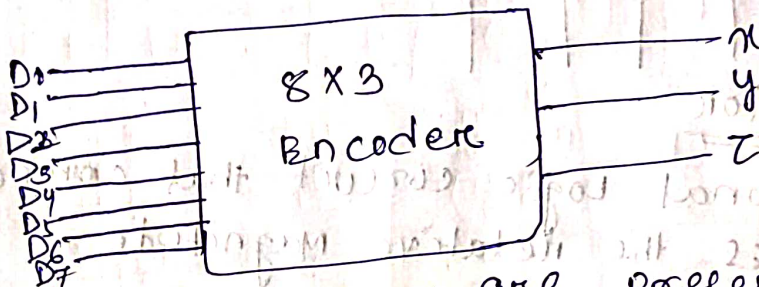 D0
D1
D2
D3
D4
D5
D6
D7
8 X 3
Encoder
x
y
z
are